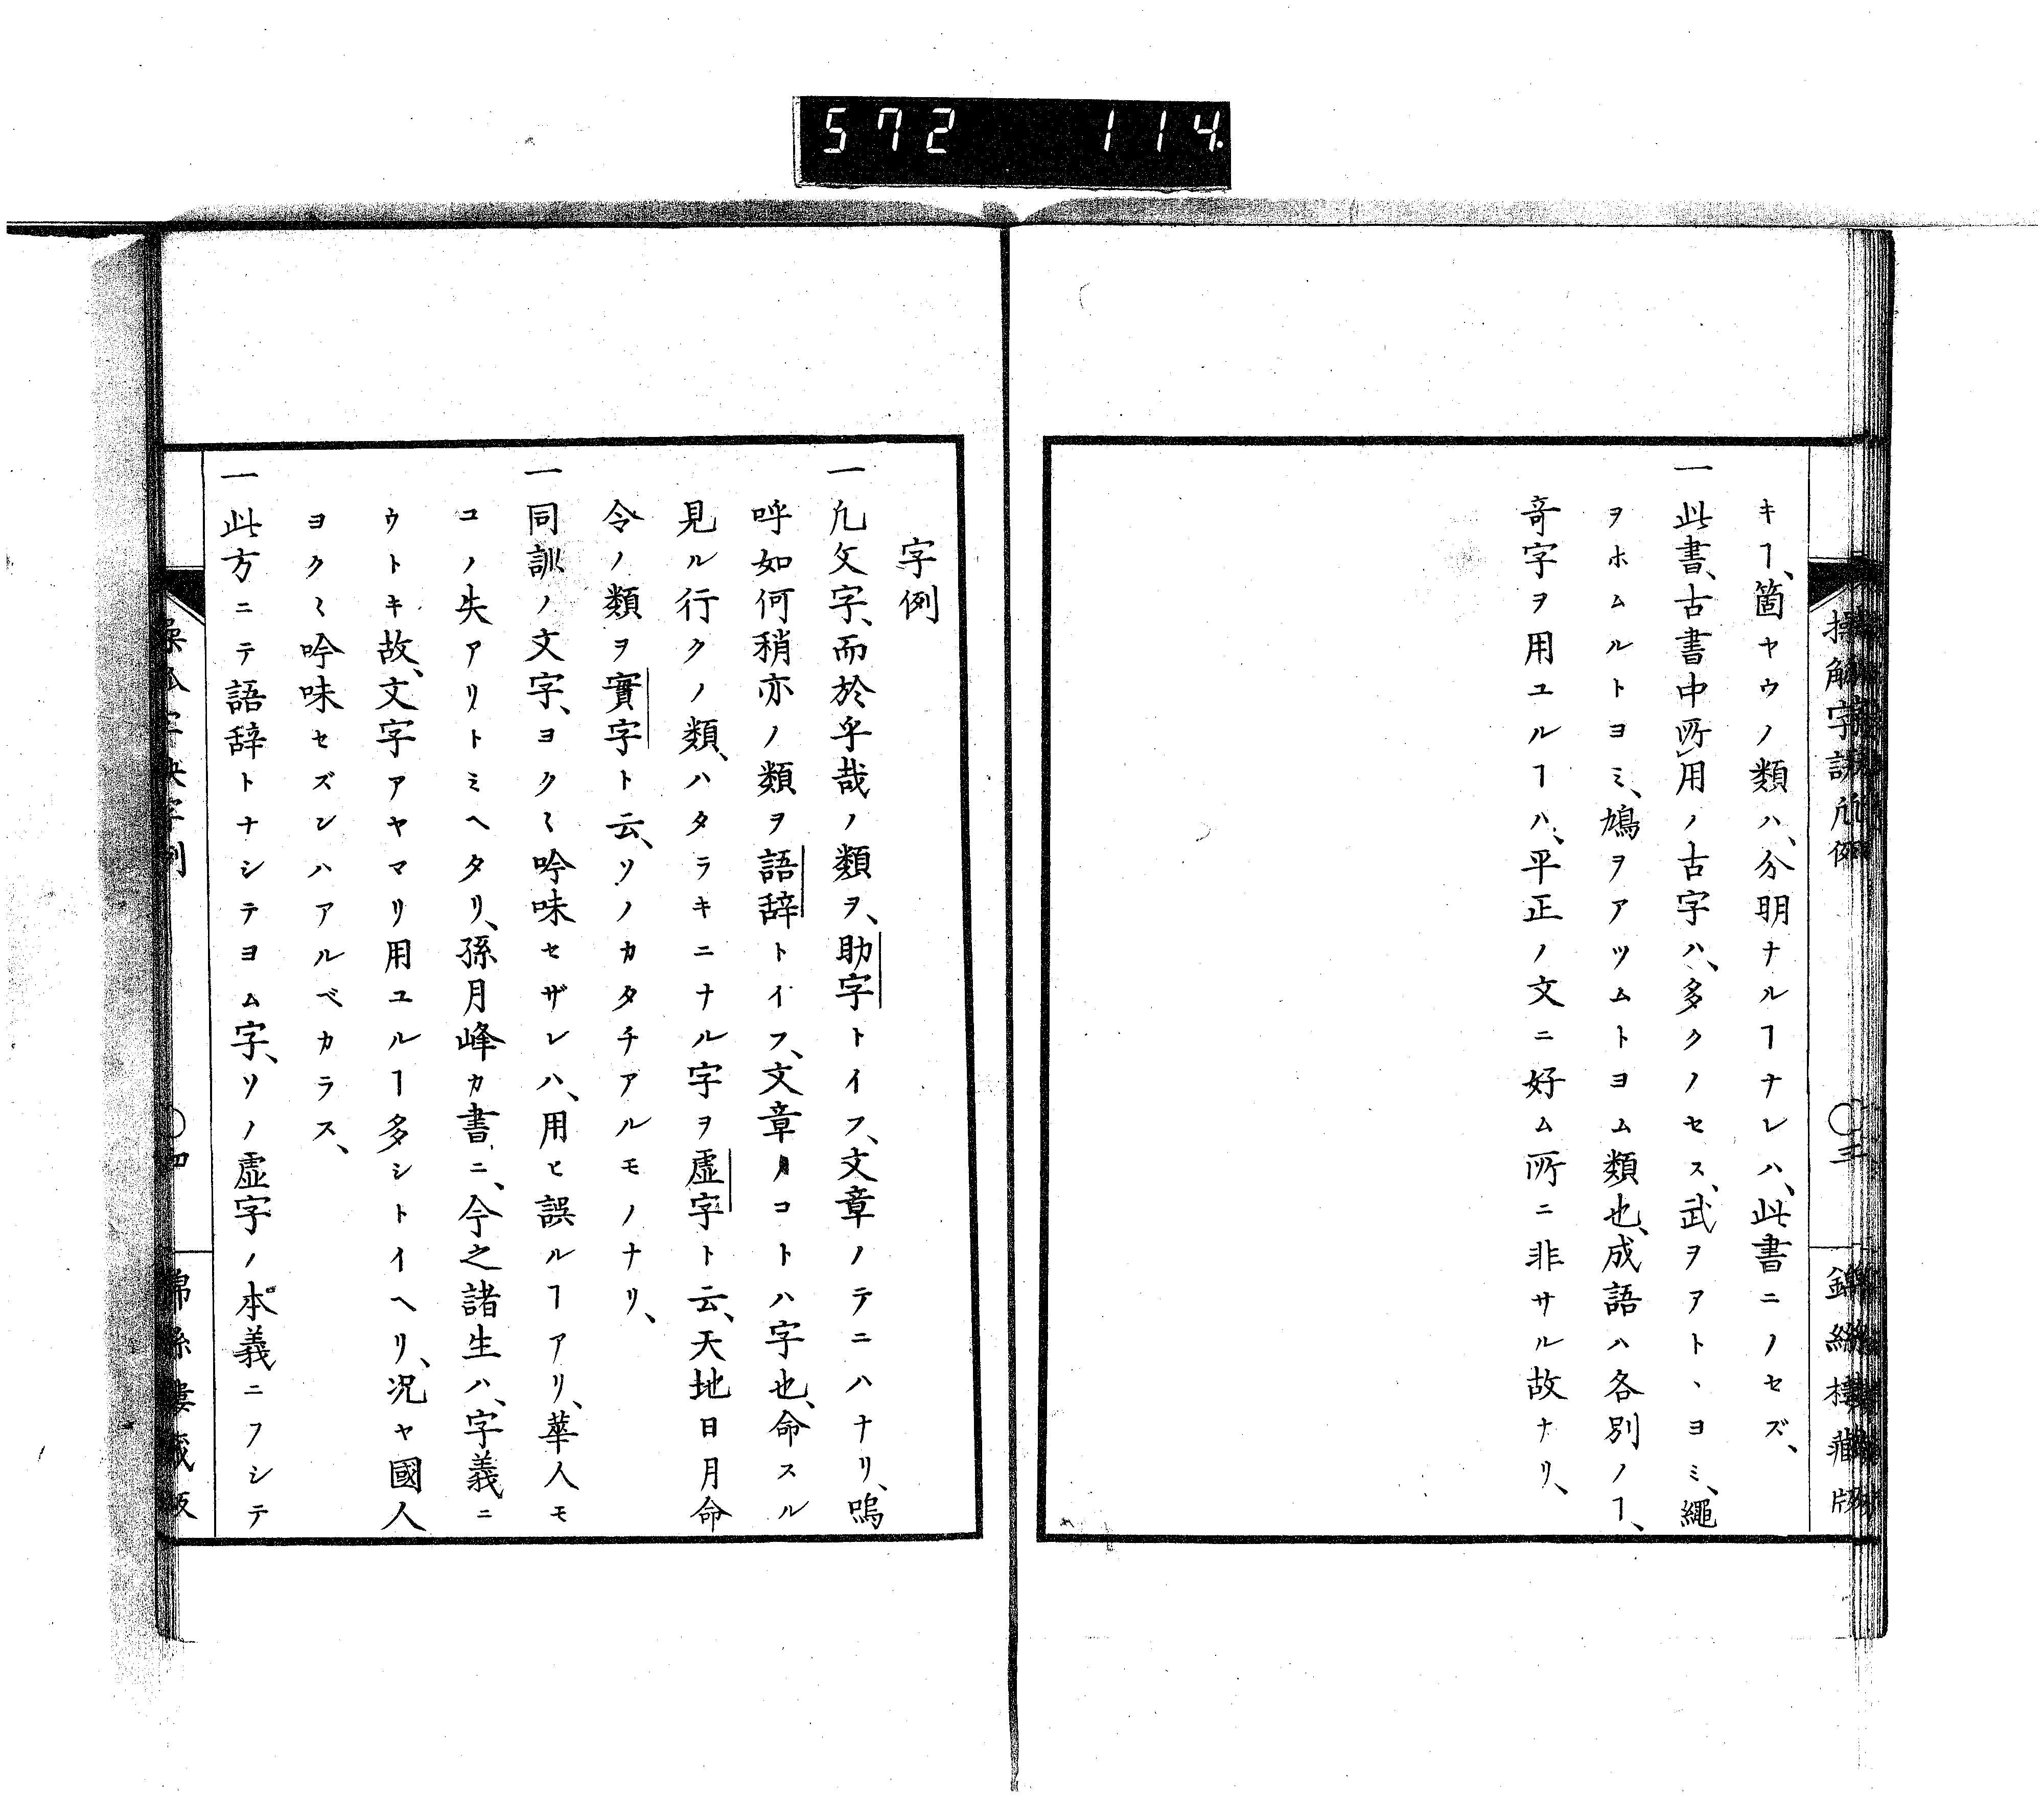 572 114.
キヿ、箇ヤウノ類ハ、分明ナルヿナレハ、此書ニノセズ、
一此書、古書中所用ノ古字ハ、多クノセス、武ヲアト、ヨミ、繩
ヲホムルトヨミ、鳩ヲアツムトヨム類也、成語ハ各別ノヿ、
奇字ヲ用ユルヿハ、平正ノ文ニ好ム所ニ非サル故ナリ、
字例
一凢文字、而於乎哉ノ類ヲ、助字トイフ、文章ノテニハナリ、嗚
呼如何稍亦ノ類ヲ語辞トイフ、文章ノコトハ字也、命スル
見ル行クノ類、ハタラキニナル字ヲ虚字ト云、天地日月命
令ノ類ヲ實字ト云、ソノカタチアルモノナリ、
一同訓ノ文字、ヨク〱吟味セザレハ、用ヒ誤ルヿアリ、華人モ
コノ失アリトミヘタリ、孫月峰カ書ニ、今之諸生ハ、字義ニ
ウトキ故、文字アヤマリ用ユルヿ多シトイヘリ、况ヤ國人
ヨク〱吟味セズンハアルベカラス、
一此方ニテ語辞トナシテヨム字、ソノ虚字ノ本義ニフシテ